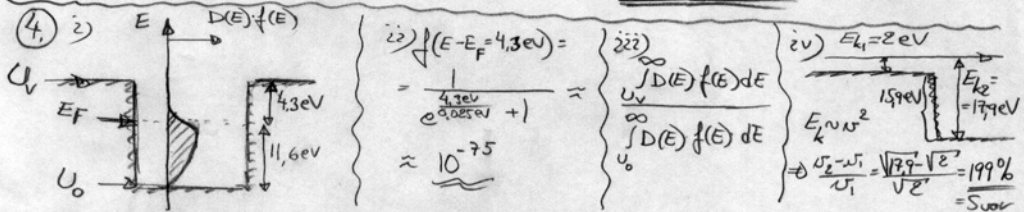 4. i) E D(E)·f(E)
U_v
E_F
U_0
4.3eV
11,6eV
ii) f(E-E_F=4,3eV)=
= 1 / (e^(4,3eV/0,025eV) + 1) ≈
≈ 10^-75
iii)
∫_{U_v}^∞ D(E) f(E) dE
∫_{U_0}^∞ D(E) f(E) dE
iv) E_k1=2eV
15,9eV
E_k2=
=17,9eV
E_k ~ v²
⇒ (v_2-v_1)/v_1 = (√17,9-√2)/√2 = 199%
= Svar